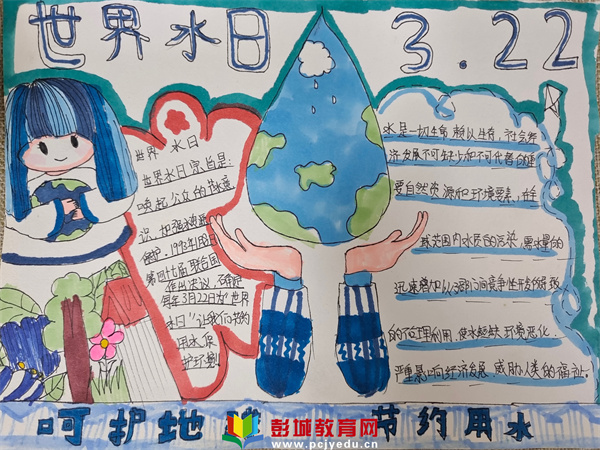 世界水日 3.22
世界 水日
世界水日宗旨是:
唤起公众的节水意
识，加强水资源
保护. 1993年1月18日
第四十七届联合国
作出决议，确定
每年3月22日为"世界
水日"让我们好好的
用水保
护环境
水是一切生命赖以生存,社会经
济发展不可缺少和不可代替的重
要自然资源和环境要素,在全
球范围内水质的污染,需水量的
迅速增加以及部门间竞争性开发
的不合理利用,使水短缺,环境恶化,
严重影响经济发展,威胁人类的福祉.
呵护地 节约用水
彭城教育网
www.pcjyedu.cn